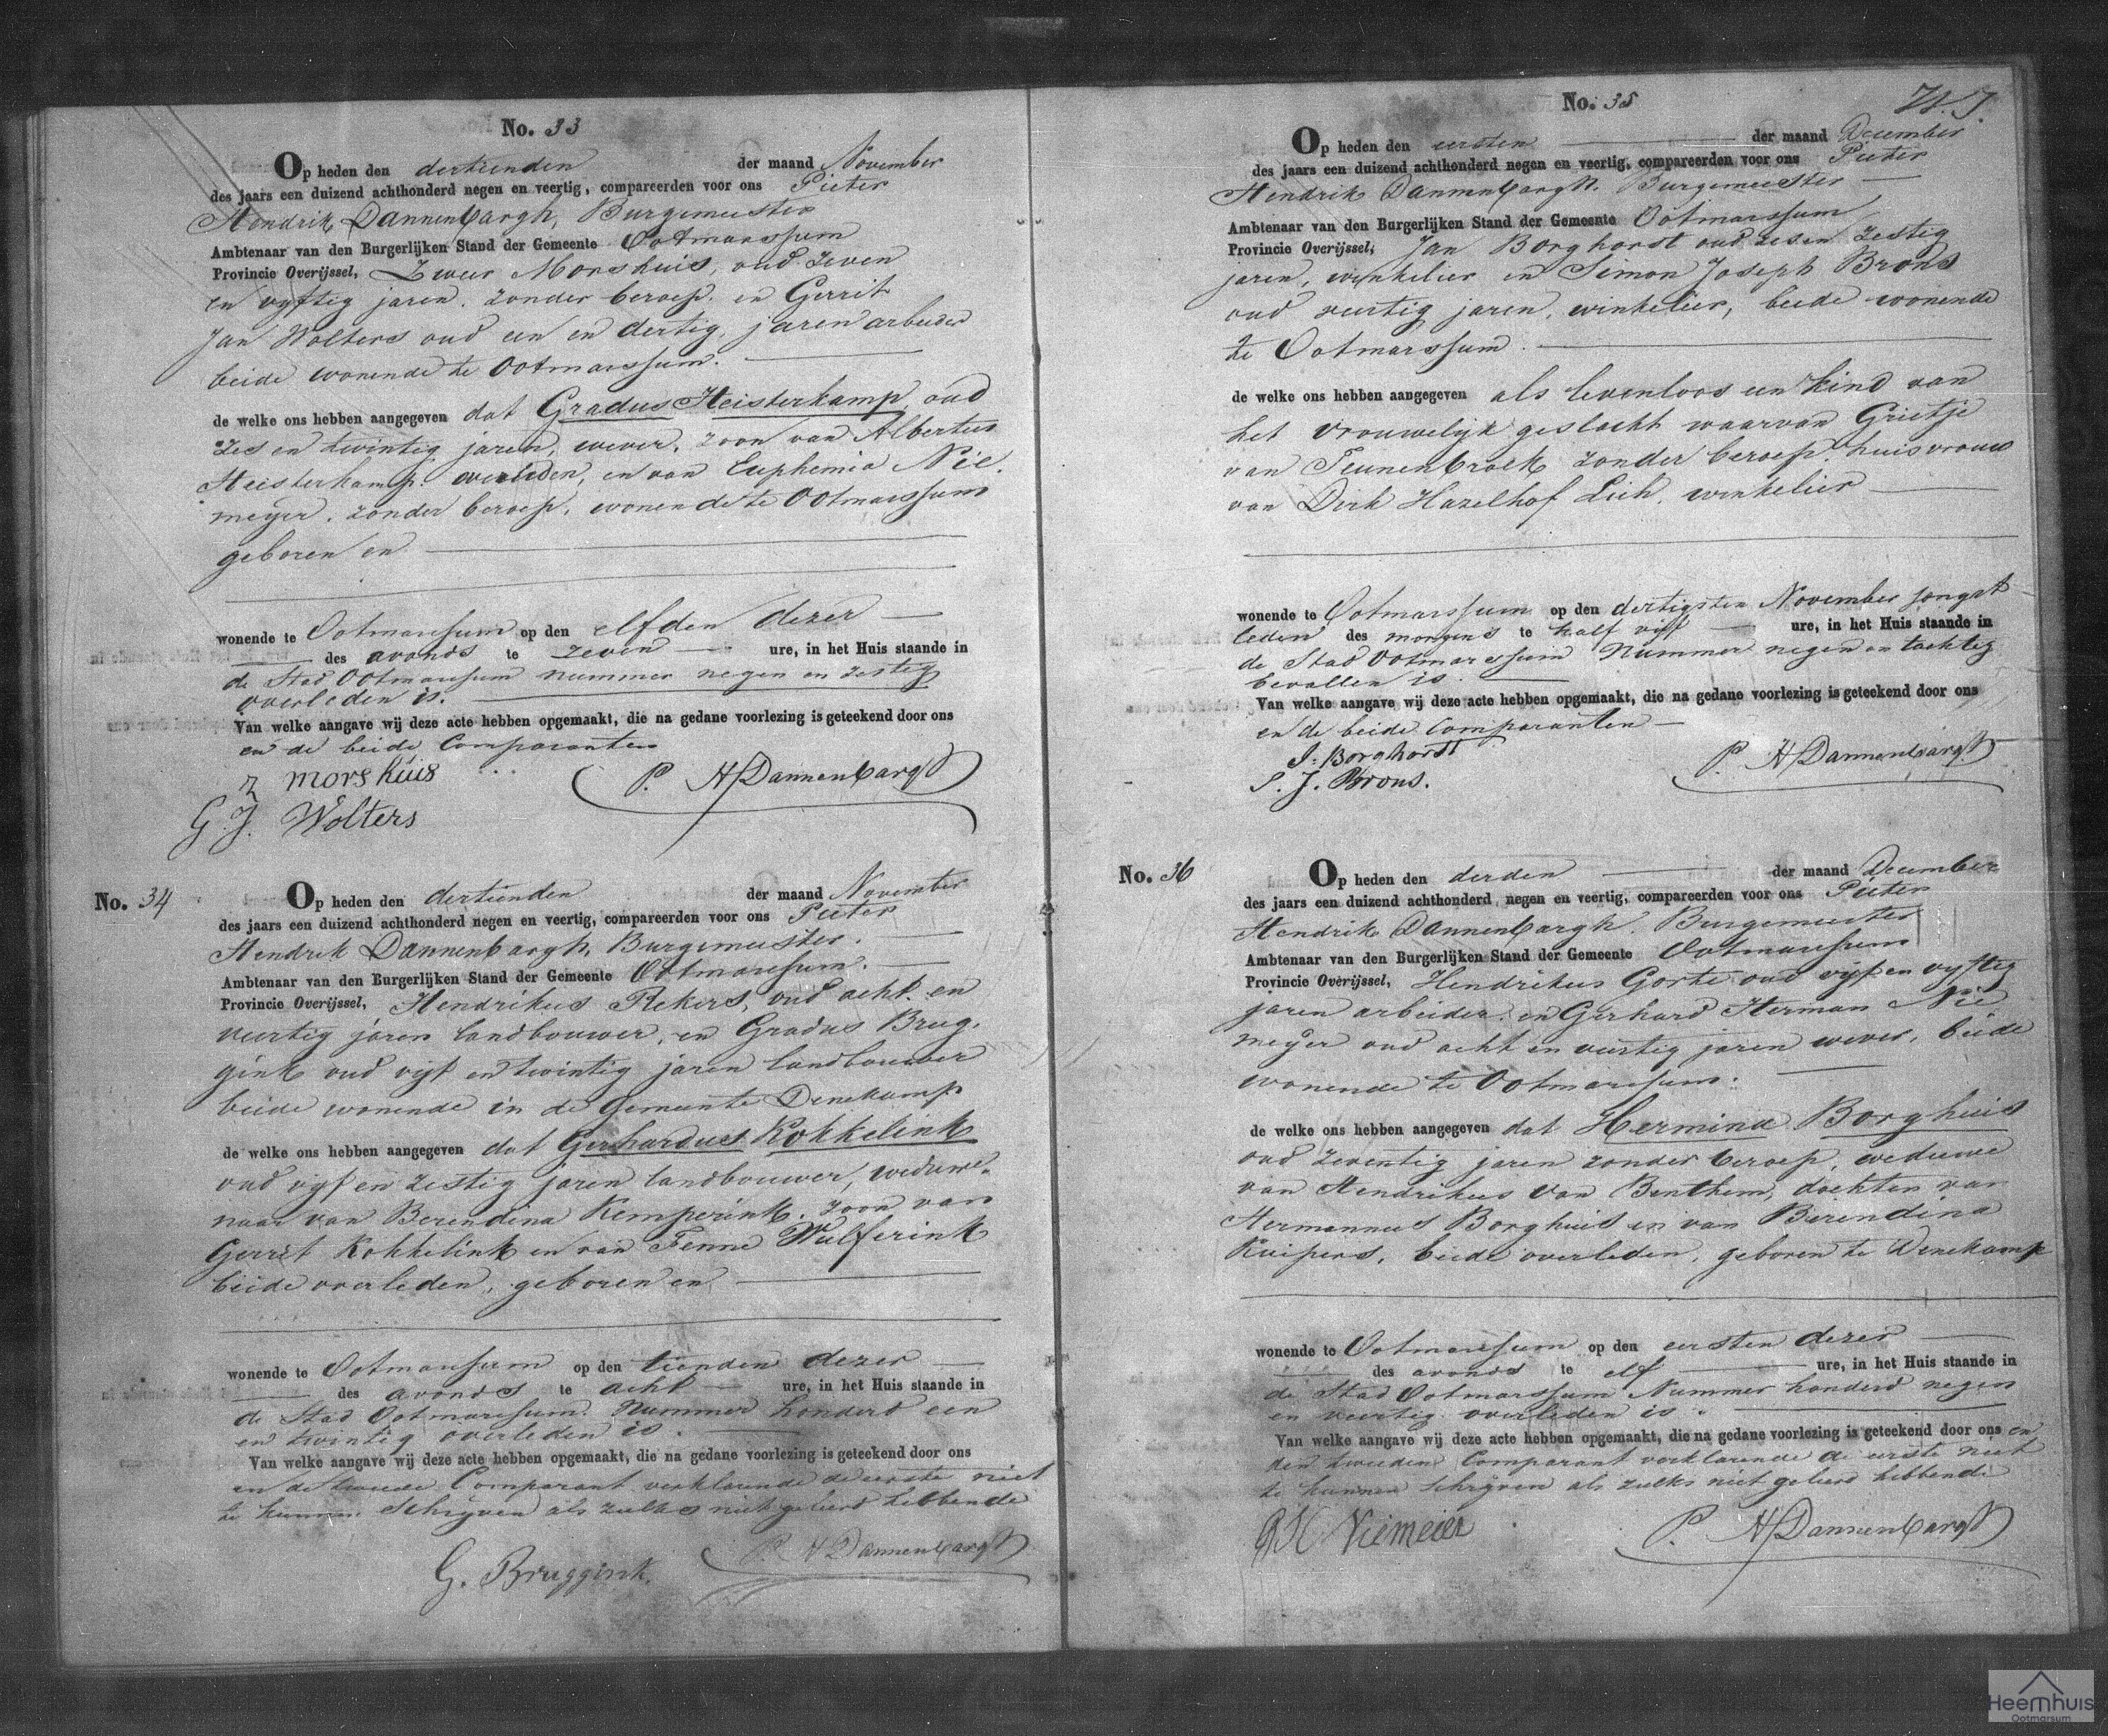 No. 33
Op heden den dertienden der maand November
des jaars een duizend achthonderd negen en veertig, compareerden voor ons Pieter
Hendrik Dannenbargh, Burgemeester
Ambtenaar van den Burgerlijken Stand der Gemeente Ootmarssum
Provincie Overijssel, Zweer Morshuis, oud zeven
en vyftig jaren, zonder beroep, en Gerrit
Jan Wolters oud een en dertig, jaren arbeider
beide wonende te Ootmarssum.
de welke ons hebben aangegeven dat Gradus Heisterkamp, oud
zes en twintig jaren, wever, zoon van Albertus
Heisterkamp, overleden, en van Euphemia Nie-
meyer, zonder beroep, wonende te Ootmarssum
geboren en
wonende te Ootmarssum op den elfden dezer
des avonds te zeven ure, in het Huis staande in
de Stad Ootmarssum nummer negen en zestig
overleden is.
Van welke aangave wij deze acte hebben opgemaakt, die na gedane voorlezing is geteekend door ons
en de beide Comparanten
Z morshuis
P. H Dannenbargh
G. J. Wolters
No. 34
Op heden den dertienden der maand November
des jaars een duizend achthonderd negen en veertig, compareerden voor ons Pieter
Hendrik Dannenbargh, Burgemeester.
Ambtenaar van den Burgerlijken Stand der Gemeente Ootmarssum.
Provincie Overijssel, Hendrikus Rekers, oud acht en
veertig jaren landbouwer, en Gradus Brug-
gink oud vyf en twintig jaren landbouwer
beide wonende in de Gemeente Denekamp
de welke ons hebben aangegeven dat Gerhardus Kokkelink
oud vyf en zestig jaren landbouwer, weduwe-
naar van Berendina Kemperink, zoon van
Gerrit Kokkelink en van Fenne Wulferink
beide overleden, geboren en
wonende te Ootmarssum op den tienden dezer
des avonds te acht ure, in het Huis staande in
de Stad Ootmarssum Nummer honderd een
en twintig overleden is.
Van welke aangave wij deze acte hebben opgemaakt, die na gedane voorlezing is geteekend door ons
en de tweede Comparant verklarende de eerste niet
te kunnen Schryven als zulks niet geleerd hebbende
P. H Dannenbargh
G. Bruggink.
No. 35
Op heden den eersten der maand December
des jaars een duizend achthonderd negen en veertig, compareerden voor ons Pieter
Hendrik Dannenbargh. Burgemeester
Ambtenaar van den Burgerlijken Stand der Gemeente Ootmarssum
Provincie Overijssel, Jan Borghorst oud zes en zestig
jaren, winkelier en Simon Joseph Brons
oud veertig jaren, winkelier, beide wonende
te Ootmarssum.
de welke ons hebben aangegeven als levenloos een kind van
het vrouwelyk geslacht waarvan Grietje
van Teunenbroek zonder beroep huisvrouw
van Dirk Hazelhof Lich, winkelier
wonende te Ootmarssum op den dertigsten November jongst
leden des morgens te half vijf ure, in het Huis staande in
de Stad Ootmarssum Nummer negen en tachtig
bevallen is.
Van welke aangave wij deze acte hebben opgemaakt, die na gedane voorlezing is geteekend door ons
en de beide Comparanten
J. Borghorst
P. H Dannenbargh
S. J. Brons.
No. 36
Op heden den derden der maand December
des jaars een duizend achthonderd negen en veertig, compareerden voor ons Pieter
Hendrik Dannenbargh. Burgemeester
Ambtenaar van den Burgerlijken Stand der Gemeente Ootmarssum
Provincie Overijssel, Hendrikus Gorte oud vyf en vyftig
jaren arbeider, en Gerhard Herman Nie
meyer oud acht en veertig jaren wever, beide
wonende te Ootmarssum.
de welke ons hebben aangegeven dat Hermina Borghuis
oud zeventig jaren zonder beroep, weduwe
van Hendrikus van Benthem, dochter van
Hermannus Borghuis en van Berendina
Kuipers, beide overleden, geboren te Denekamp
wonende te Ootmarssum op den eersten dezer
des avonds te elf ure, in het Huis staande in
de Stad Ootmarssum Nummer honderd negen
en veertig overleden is.
Van welke aangave wij deze acte hebben opgemaakt, die na gedane voorlezing is geteekend door ons en
den tweeden Comparant verklarende de eerste niet
te kunnen schryven als zulks niet geleerd hebbende
GH Niemeier
P. H Dannenbargh
Heemhuis
Ootmarsum